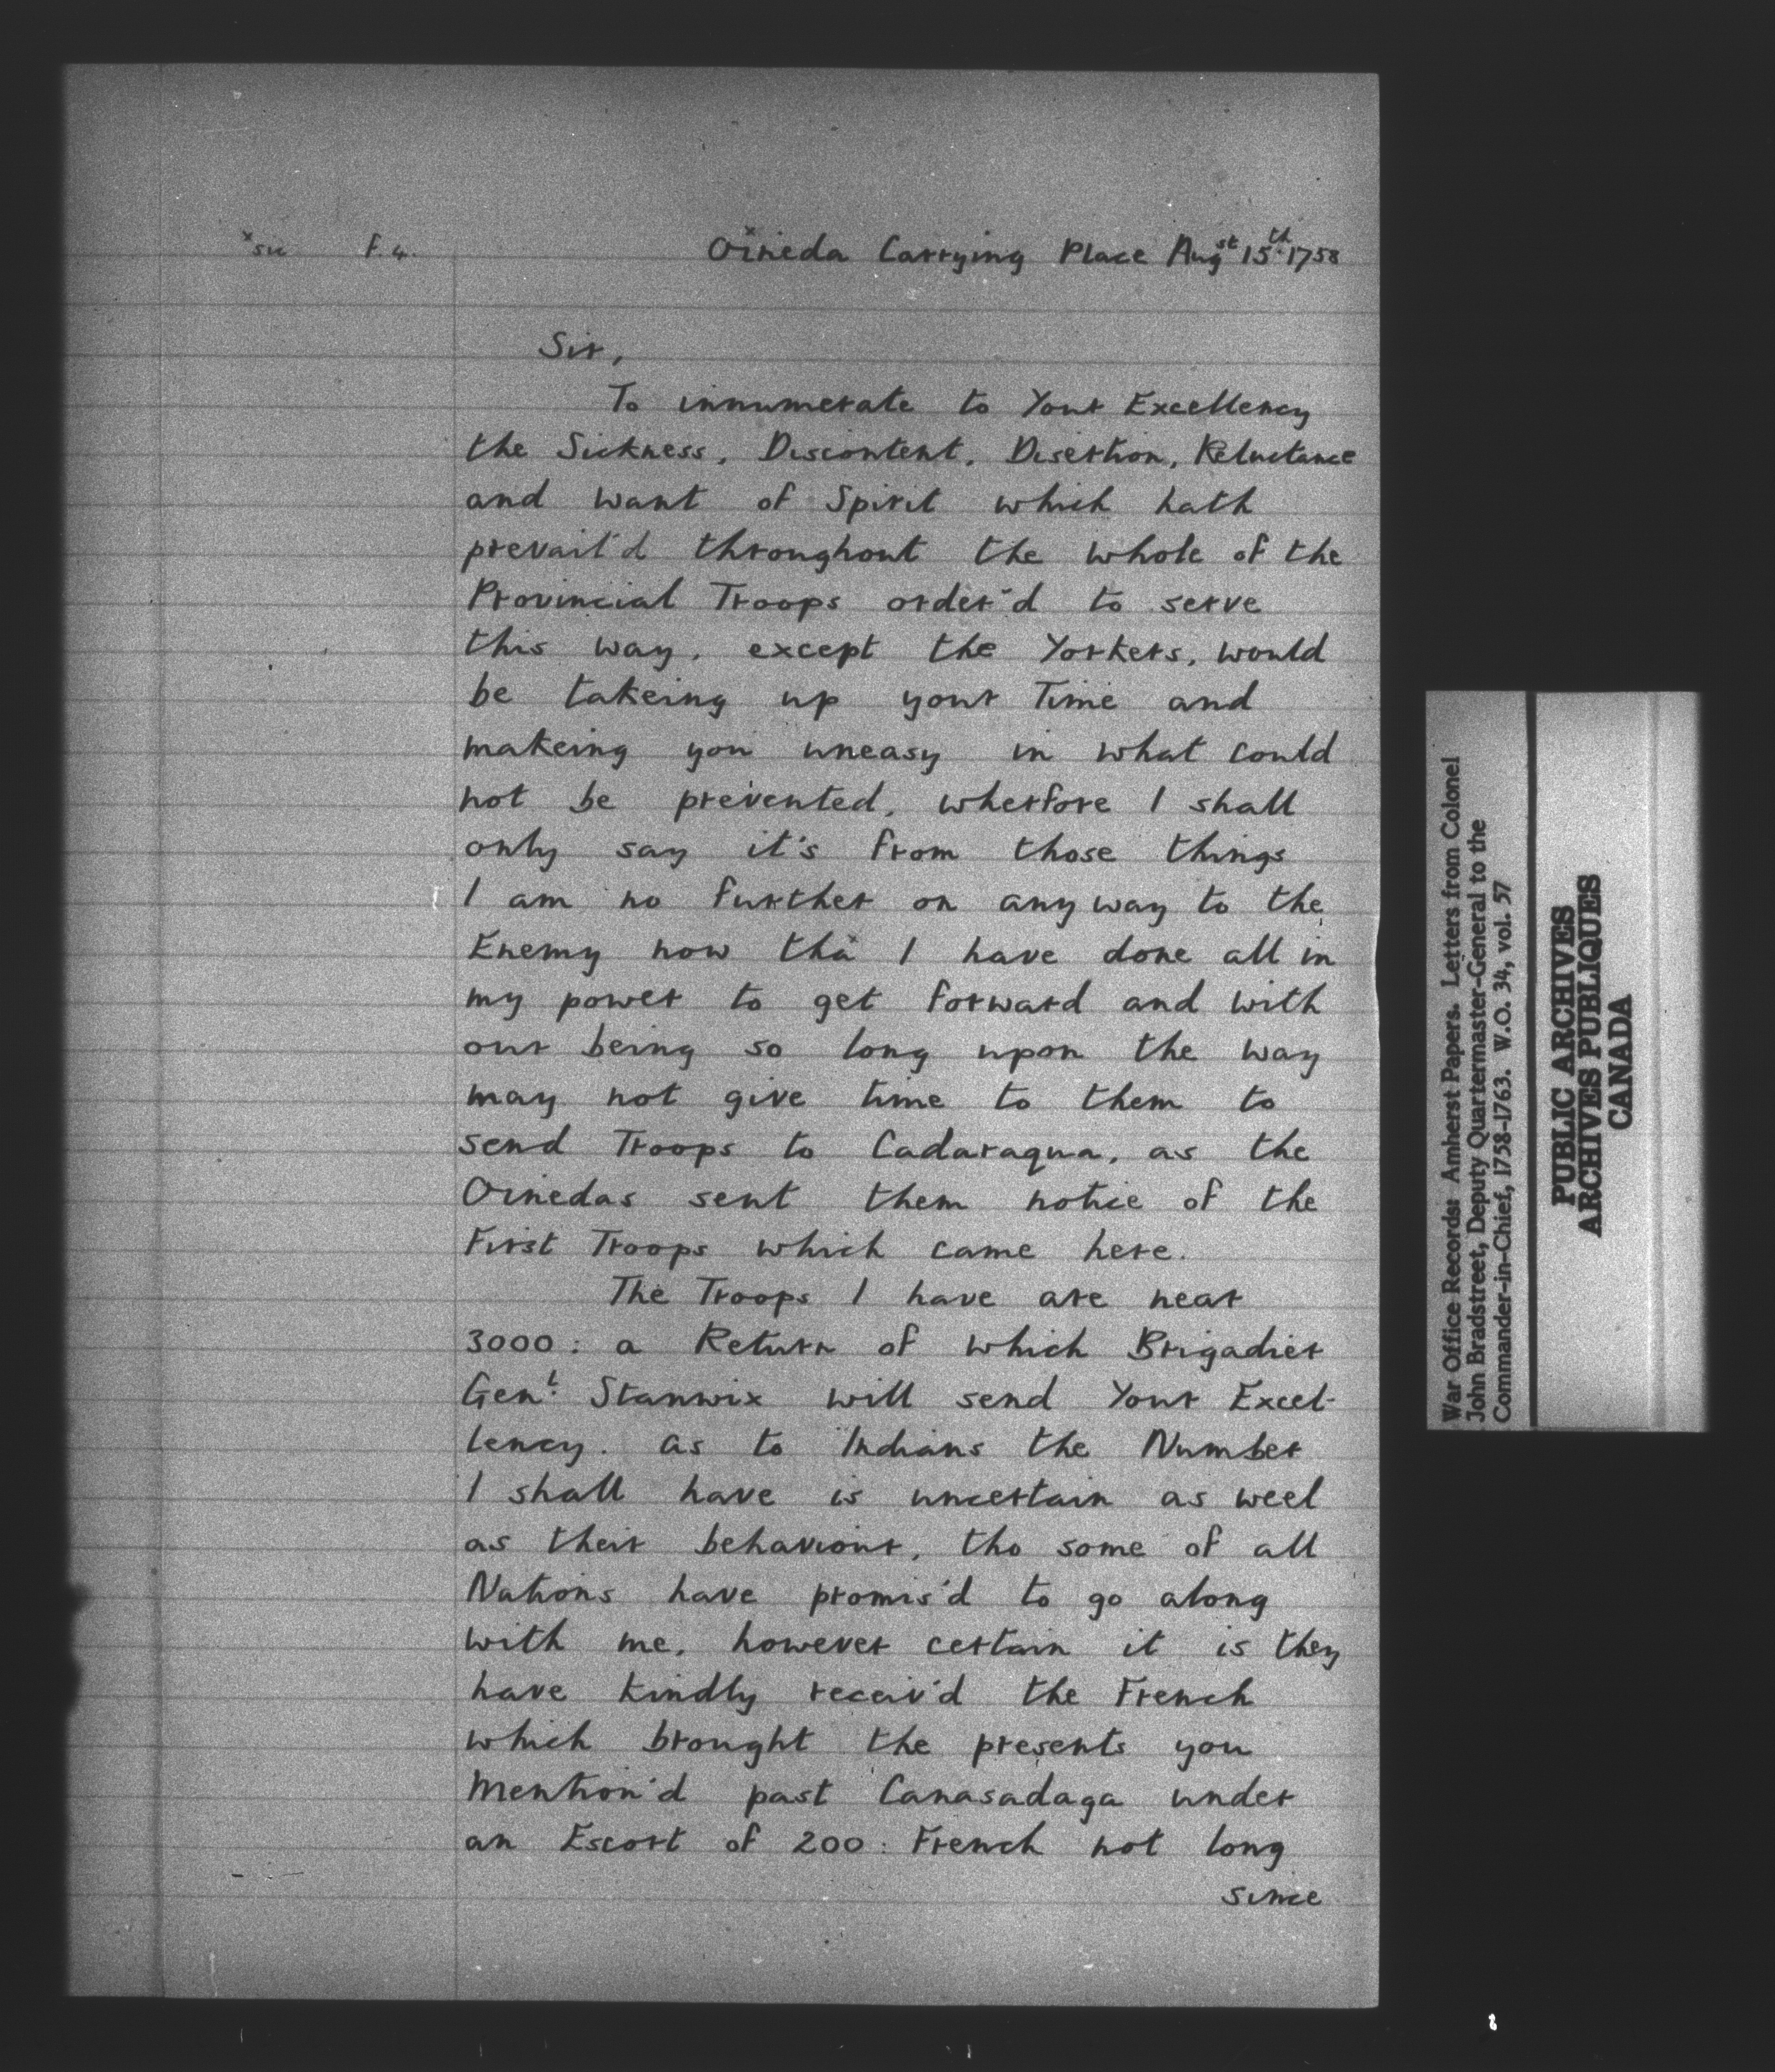 x sic f. 4. Oineda Carrying Place Augst 15th 1758
Sir,
To innumerate to Your Excellency
the Sickness, Discontent, Disertion, Reluctance
and want of Spirit which hath
prevail'd throughout the whole of the
Provincial Troops order'd to serve
this way, except the Yorkers, would
be takeing up your Time and
makeing you uneasy in what could
not be prevented, wherfore I shall
only say it's from those things
I am no further on any way to the
Enemy now tho' I have done all in
my power to get forward and with
our being so long upon the way
may not give time to them to
send Troops to Cadaraqua, as the
Oinedas sent them notice of the
First Troops which came here.
The Troops I have are near
3000: a Return of which Brigadier
Genl. Stanwix will send Your Excel-
lency. as to Indians the Number
I shall have is uncertain as weel
as their behaviour, tho some of all
Nations have promis'd to go along
with me, however certain it is they
have kindly receiv'd the French
which brought the presents you
Mention'd past Canasadaga under
an Escort of 200: French not long
since
War Office Records: Amherst Papers. Letters from Colonel
John Bradstreet, Deputy Quartermaster-General to the
Commander-in-Chief, 1758-1763. W.O. 34, vol. 57
PUBLIC ARCHIVES
ARCHIVES PUBLIQUES
CANADA